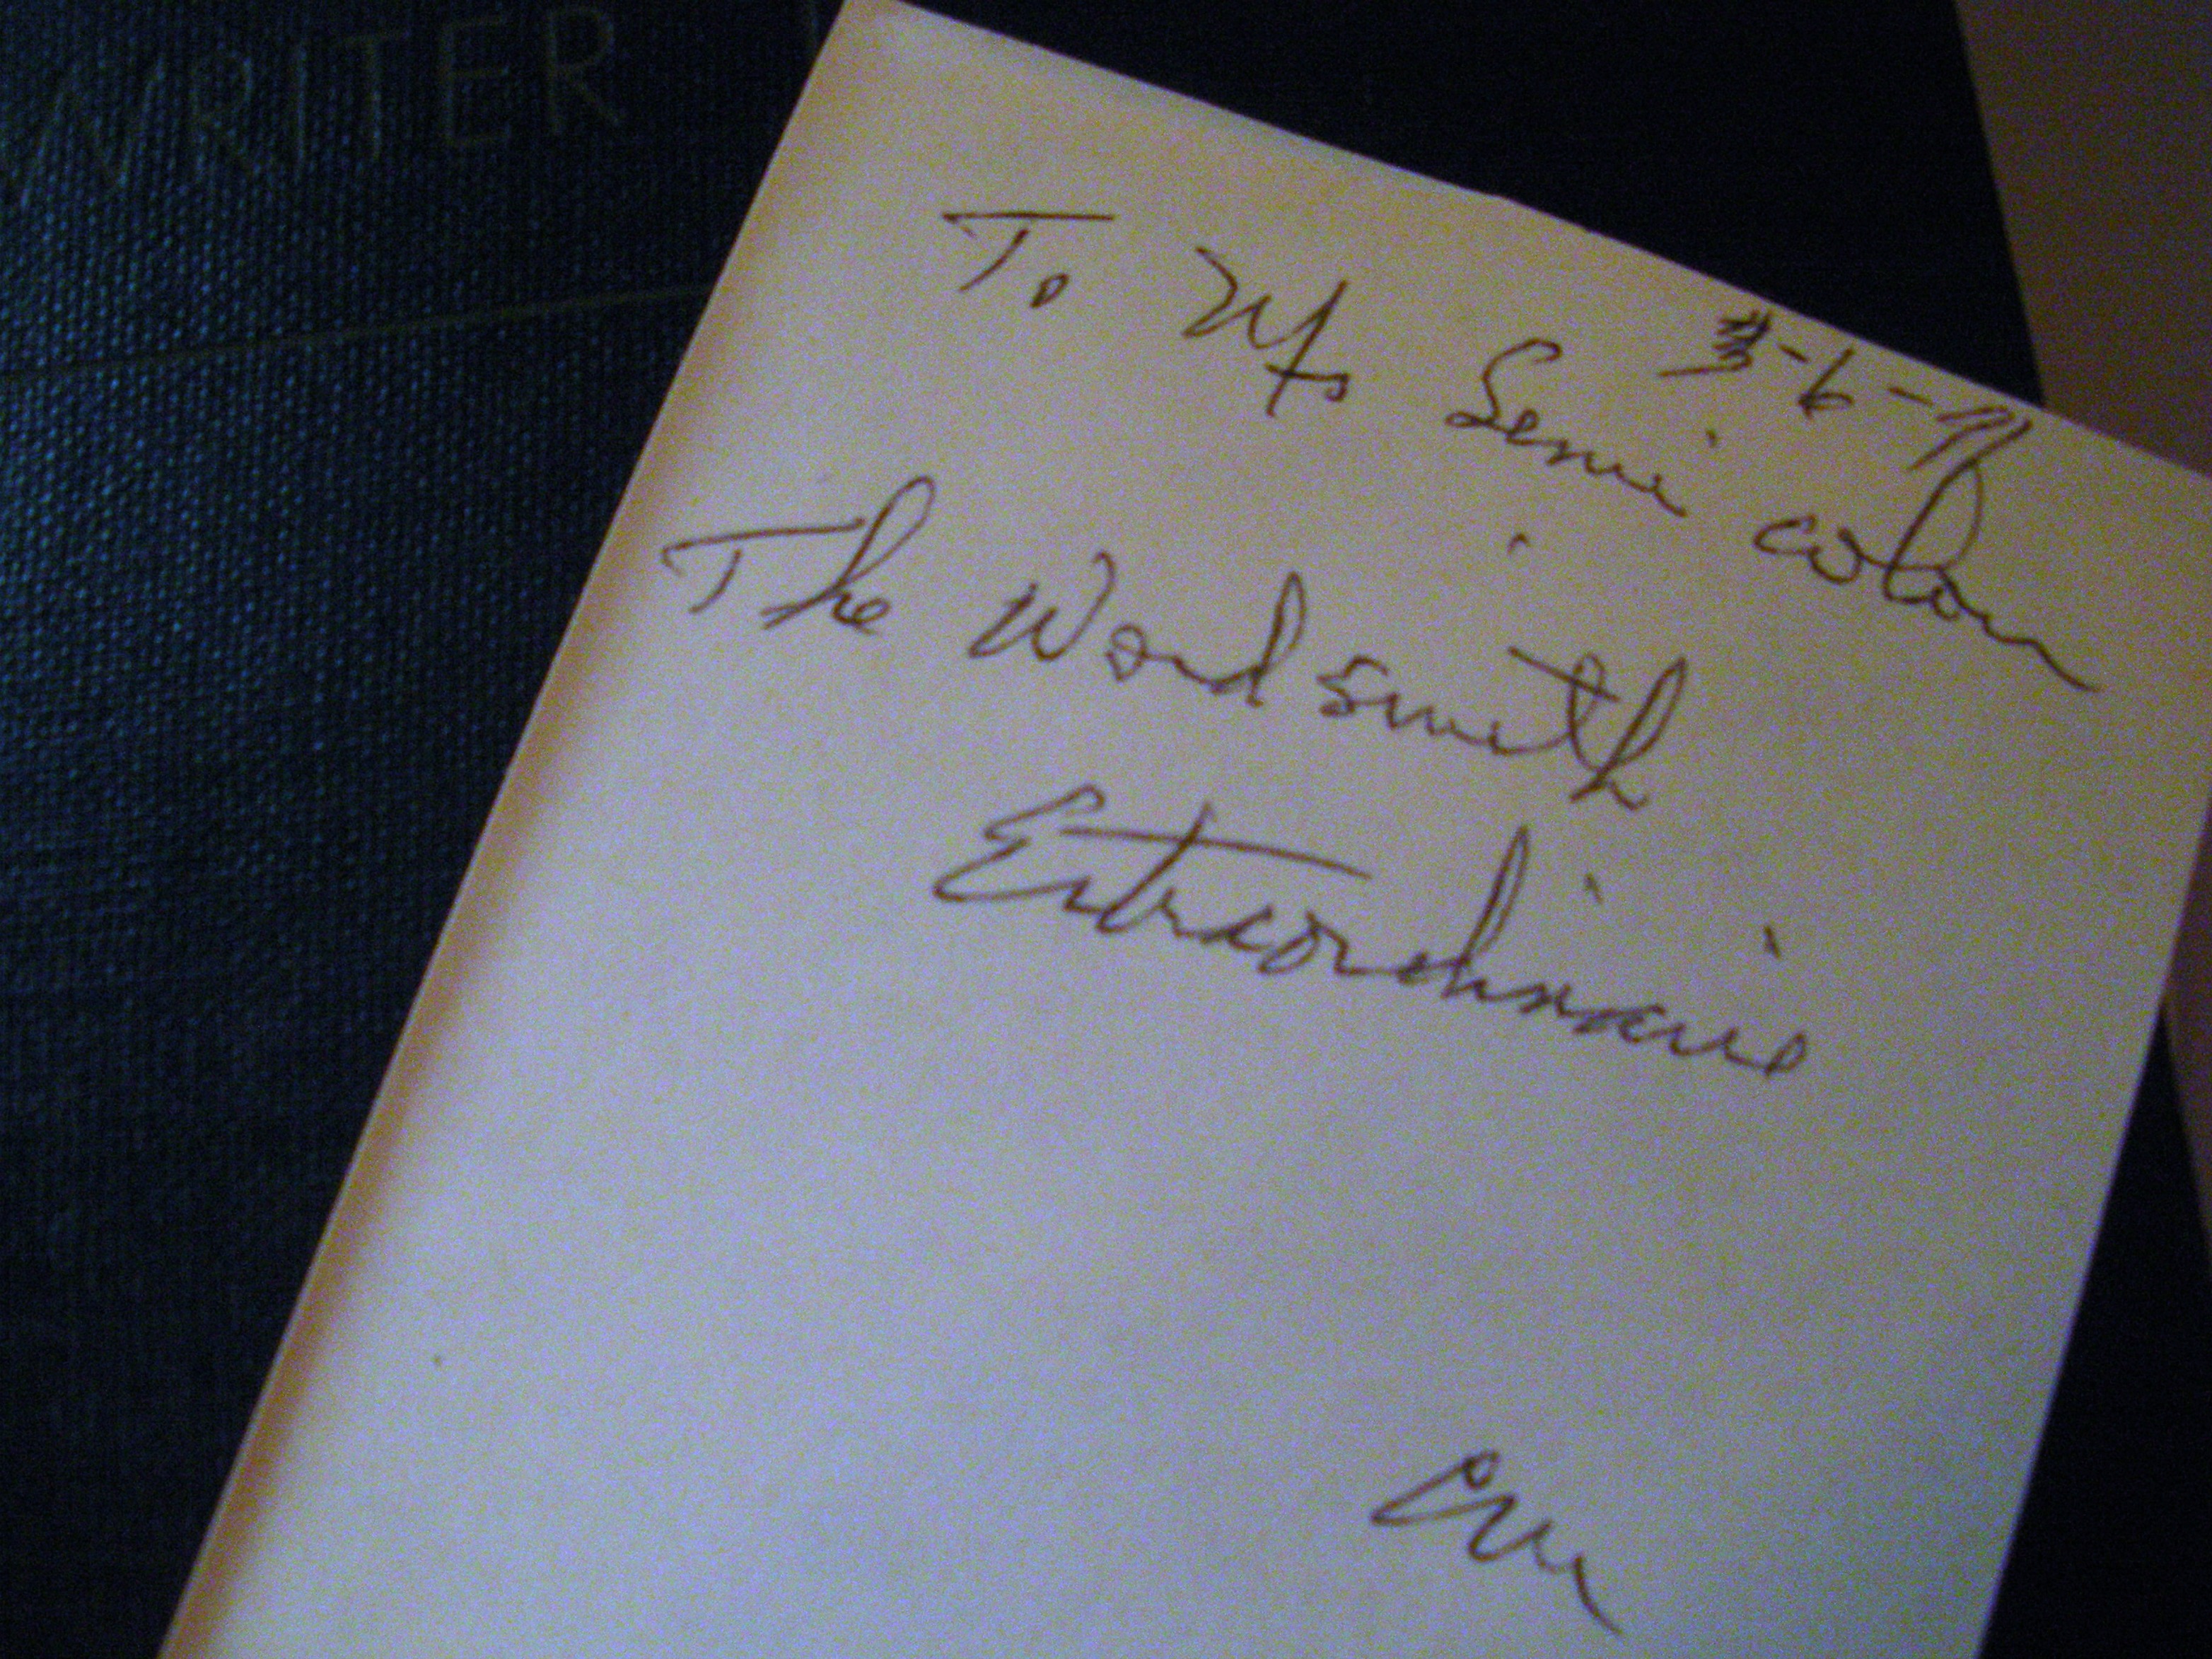 WRITER
3-6-71
To Ms Semi colon
The Wordsmith
Extraordinaire